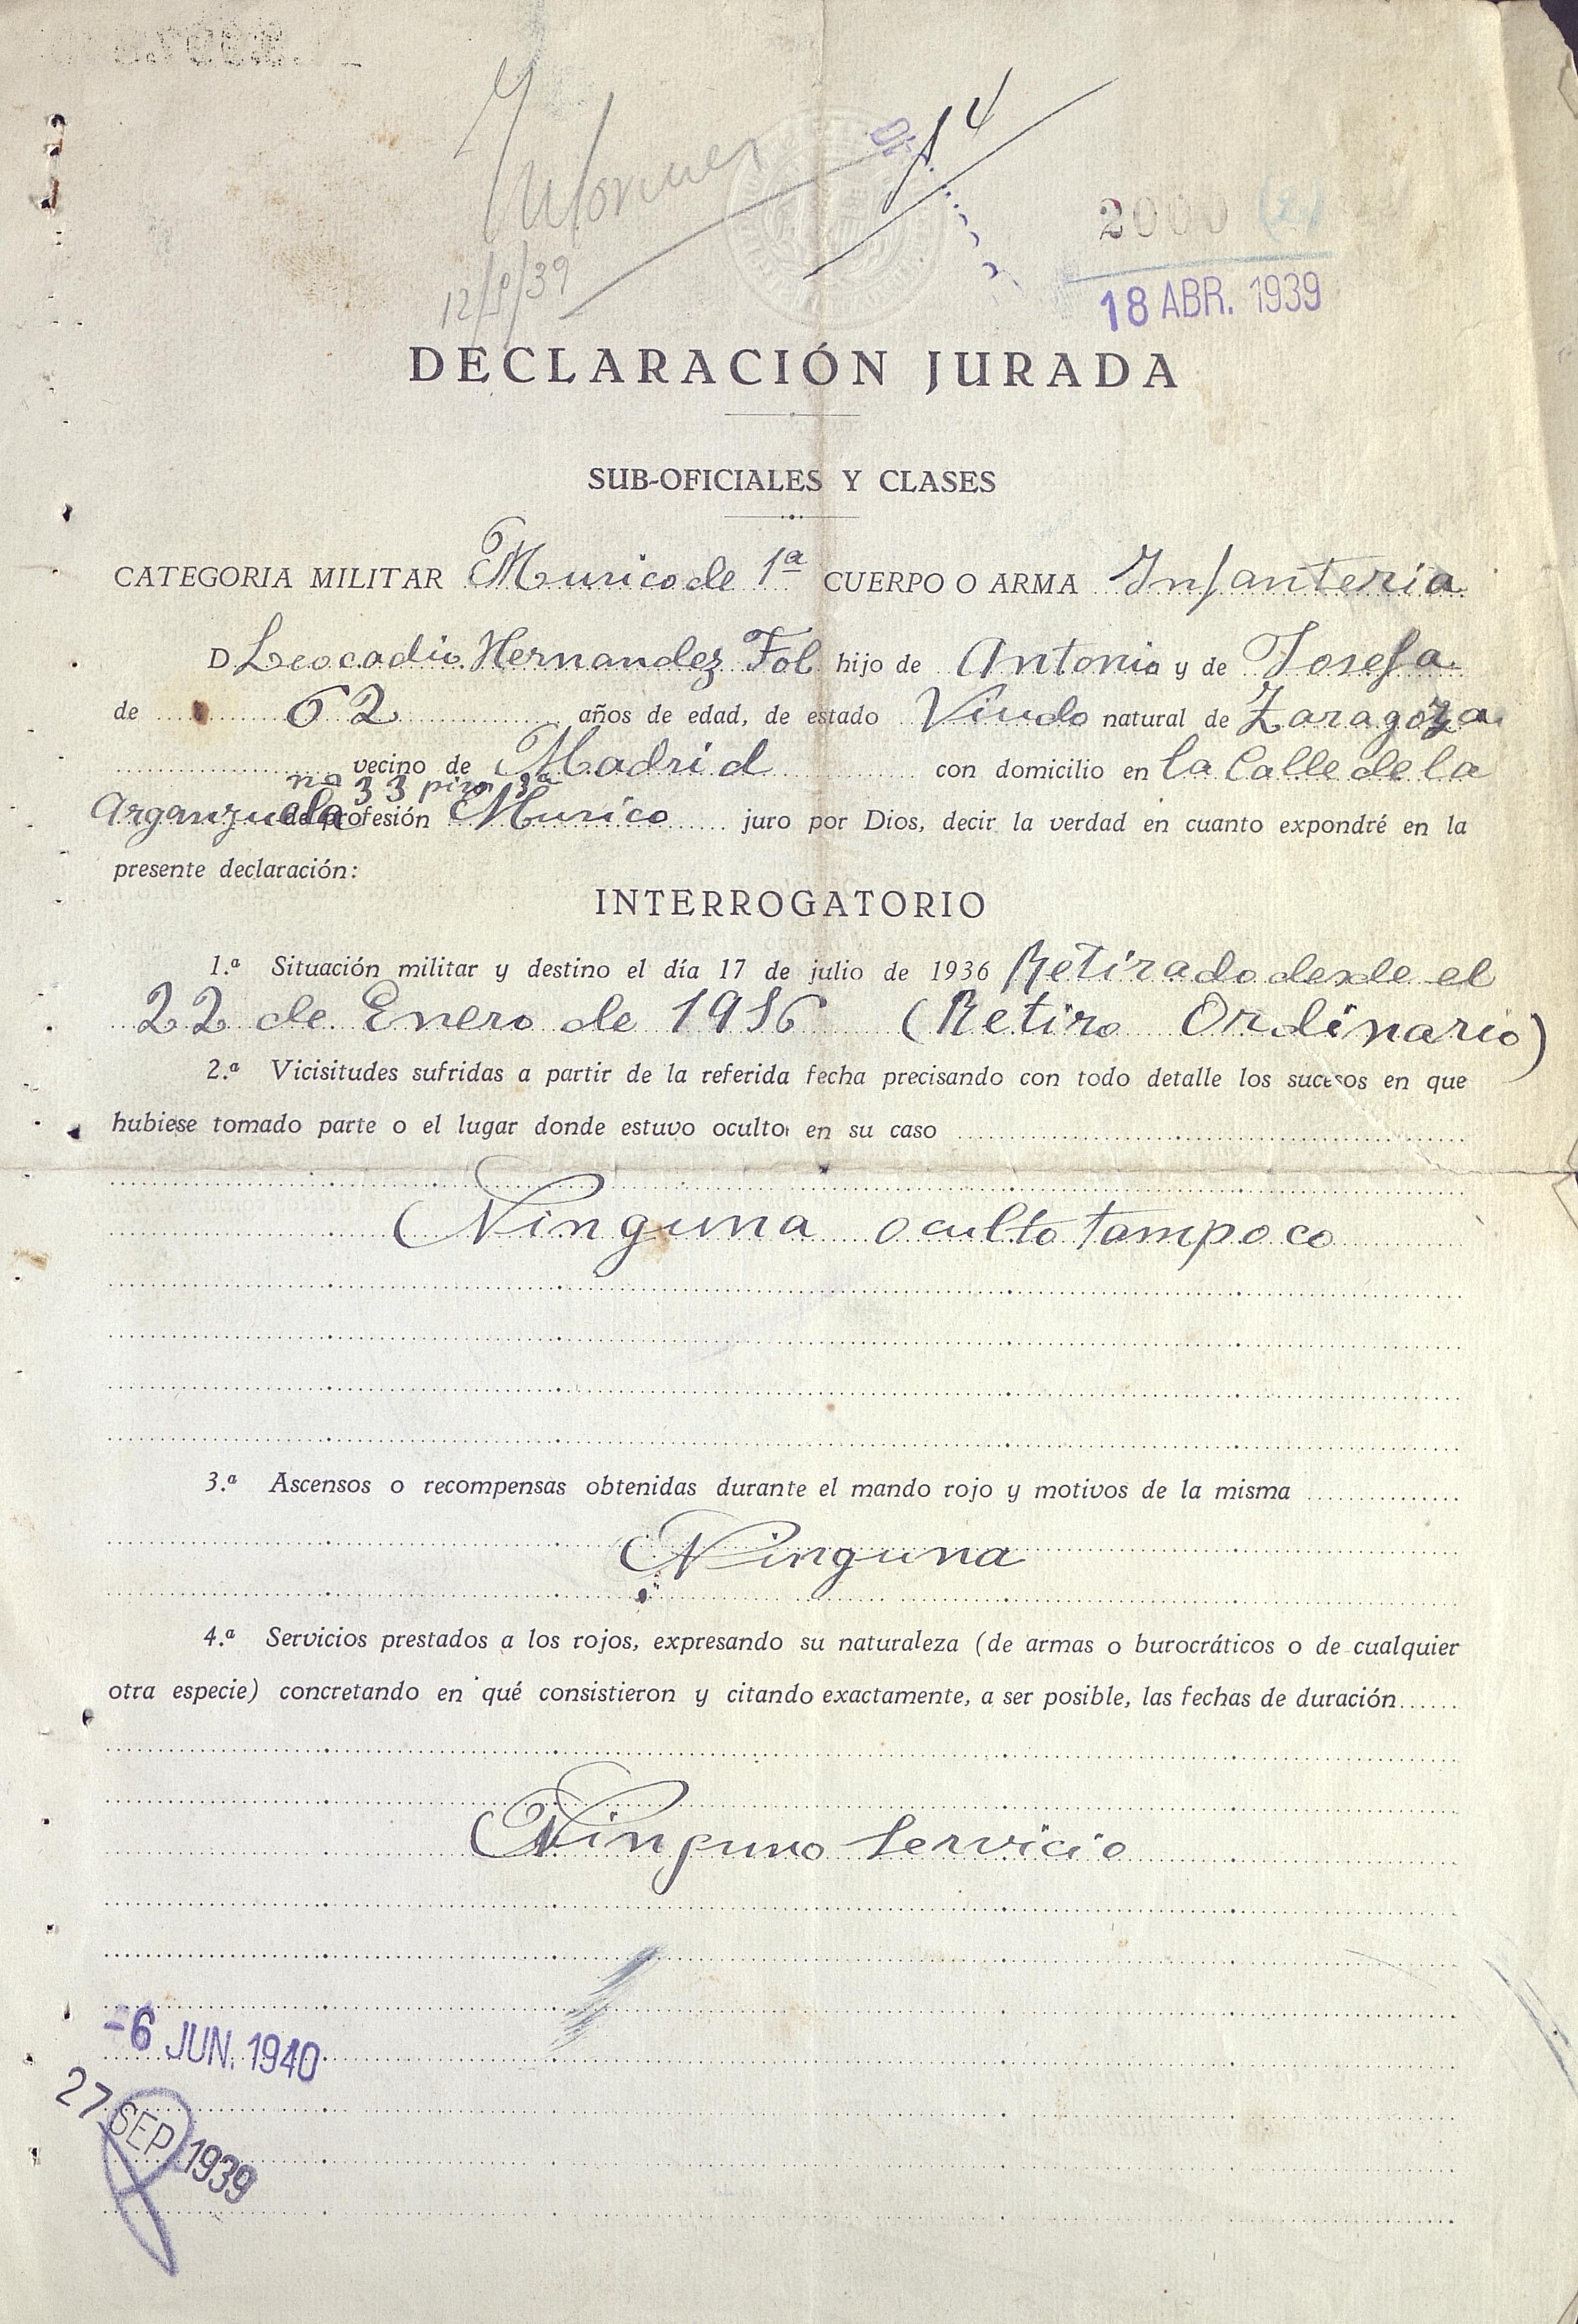 Informes
12/9/39
14
2000
18 ABR. 1939
DECLARACIÓN JURADA
SUB-OFICIALES Y CLASES
CATEGORIA MILITAR Musico de 1ª CUERPO O ARMA Infanteria
D Leocadio Hernandez Fol hijo de Antonio y de Josefa
de 62 años de edad, de estado Viudo natural de Zaragoza
vecino de Madrid con domicilio en la Calle de la
nº 33 piso 3º
Arganzuela de profesión Musico juro por Dios, decir la verdad en cuanto expondré en la
presente declaración:
INTERROGATORIO
1.ª Situación militar y destino el día 17 de julio de 1936 Retirado desde el
22 de Enero de 1936 (Retiro Ordinario)
2.ª Vicisitudes sufridas a partir de la referida fecha precisando con todo detalle los sucesos en que
hubiese tomado parte o el lugar donde estuvo oculto en su caso
Ninguna oculto tampoco
3.ª Ascensos o recompensas obtenidas durante el mando rojo y motivos de la misma
Ninguna
4.ª Servicios prestados a los rojos, expresando su naturaleza (de armas o burocráticos o de cualquier
otra especie) concretando en qué consistieron y citando exactamente, a ser posible, las fechas de duración
Ninguno Servicio
-6 JUN. 1940
27 SEP 1939